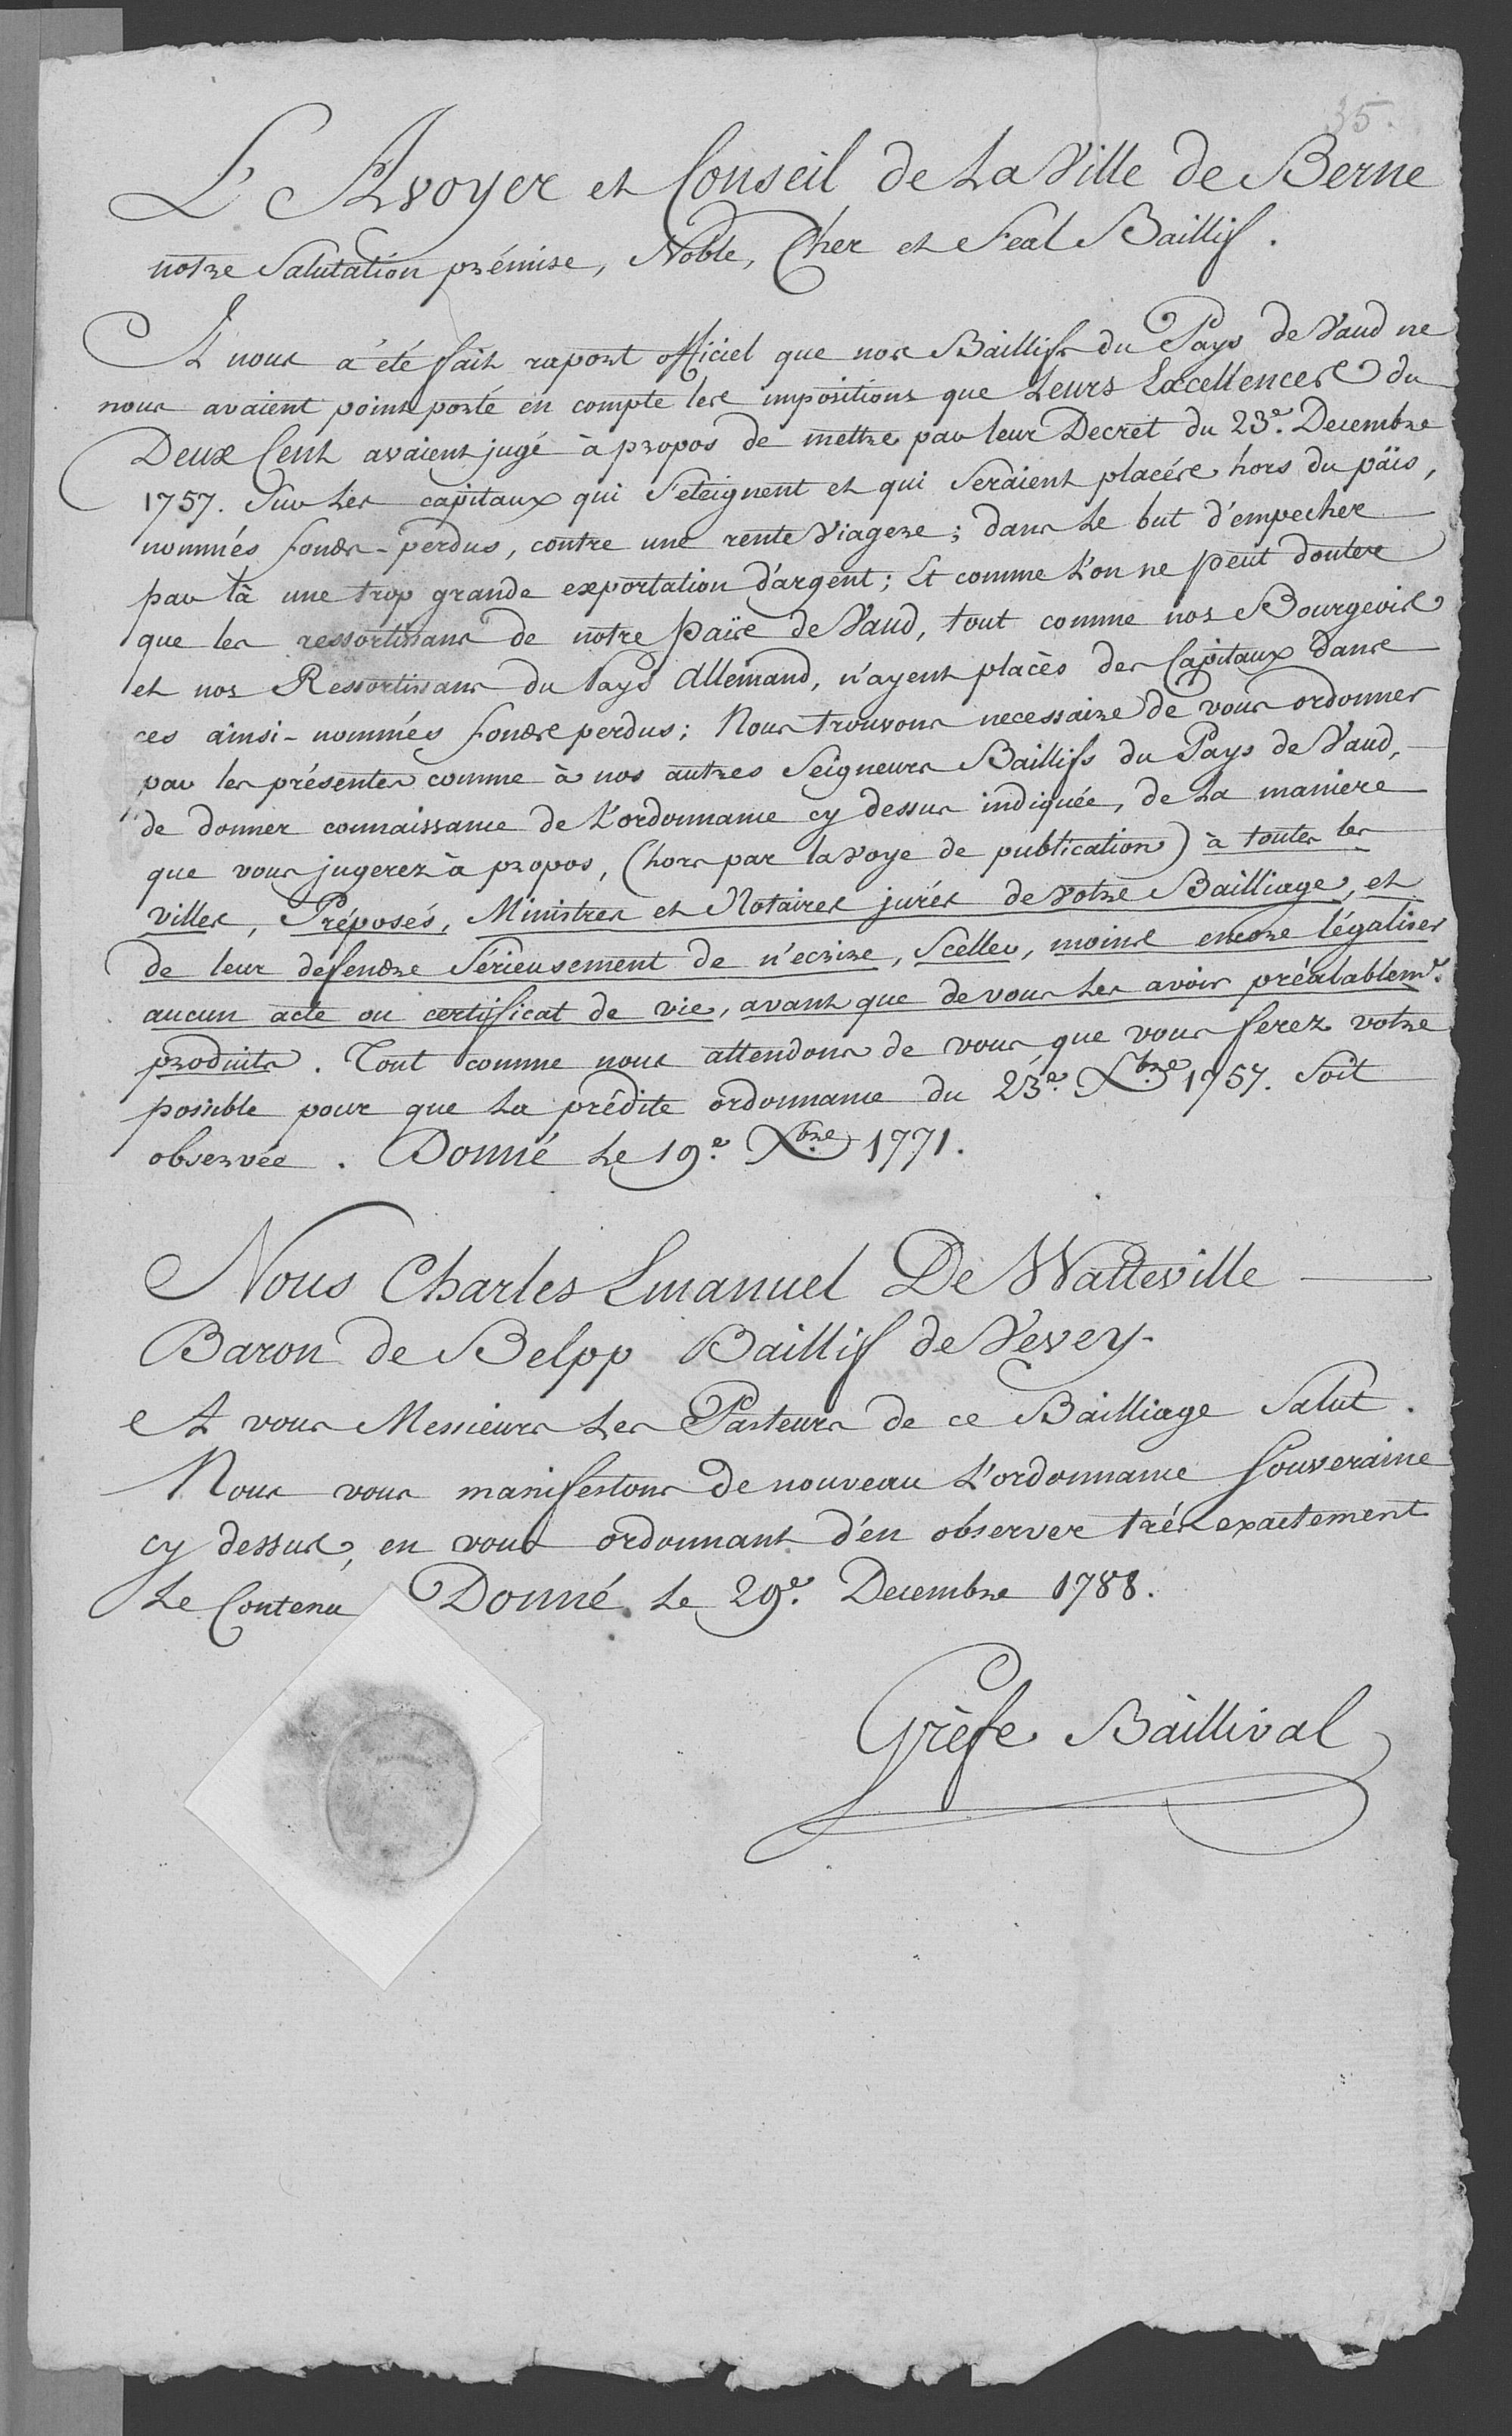 35.
L'Avoyer et Conseil de La Ville de Berne
notre Salutation prémise, Noble, Cher et Feal Baillif.
Il nous a été fait raport officiel que nos Baillifs du Pays de Vaud ne
nous avaient point porté en compte les impositions que Leurs Excellences du
Deux Cent avaient jugé à propos de mettre par leur Decret du 23e. Decembre
1757. Sur Les capitaux qui S'eteignent et qui Seraient placés hors du païs,
nommés fonds-perdus, contre une rente Viagere; dans Le but d'empecher
par là une trop grande exportation d'argent; Et comme L'on ne peut douter
que les ressortissans de notre païs de Vaud, tout comme nos Bourgeois
et nos Ressortissans du Pays Allemand, n'ayent placés des Capitaux dans
ces ainsi-nommés fonds perdus; Nous trouvons necessaire de vous ordonner
par les présentes comme à nos autres Seigneurs Baillifs du Pays de Vaud,
de donner connaissance de L'ordonnance cy dessus indiquée, de La maniere
que vous jugerez à propos, (hors par la voye de publication) à toutes les
villes, Préposés, Ministres et Notaires jurés de Votre Bailliage, et
de leur defendre Sérieusement de n'ecrire, Sceller, moins encore légaliser
aucun acte ou certificat de vie, avant que de vous Les avoir préalablemt.
produits. Tout comme nous attendons de vous, que vous ferez votre
possible pour que La prédite ordonnance du 23e. Xbre 1757. Soit
observée. Donné Le 19e. Xbre 1771.
Nous Charles Emanuel De Watteville
Baron de Belpp Baillif de Vevey
A vous Messieurs Les Pasteurs de ce Bailliage Salut.
Nous vous manifestons de nouveau L'ordonnance Souveraine
cy dessus, en vous ordonnant d'en observer trés exactement
Le Contenu Donné Le 29e. Decembre 1788.
Grèfe Baillival